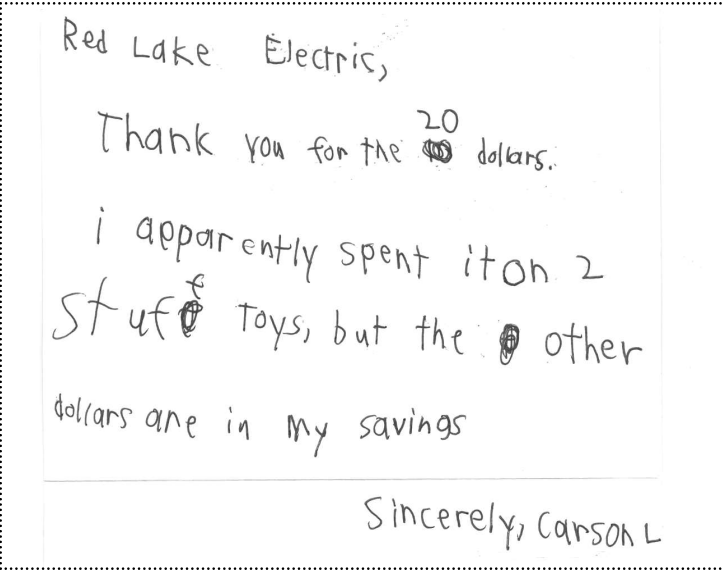 Red Lake Electric,
Thank you for the 20 dollars.
i apparently spent it on 2
stuff toys, but the other
dollars are in my savings
Sincerely, Carson L